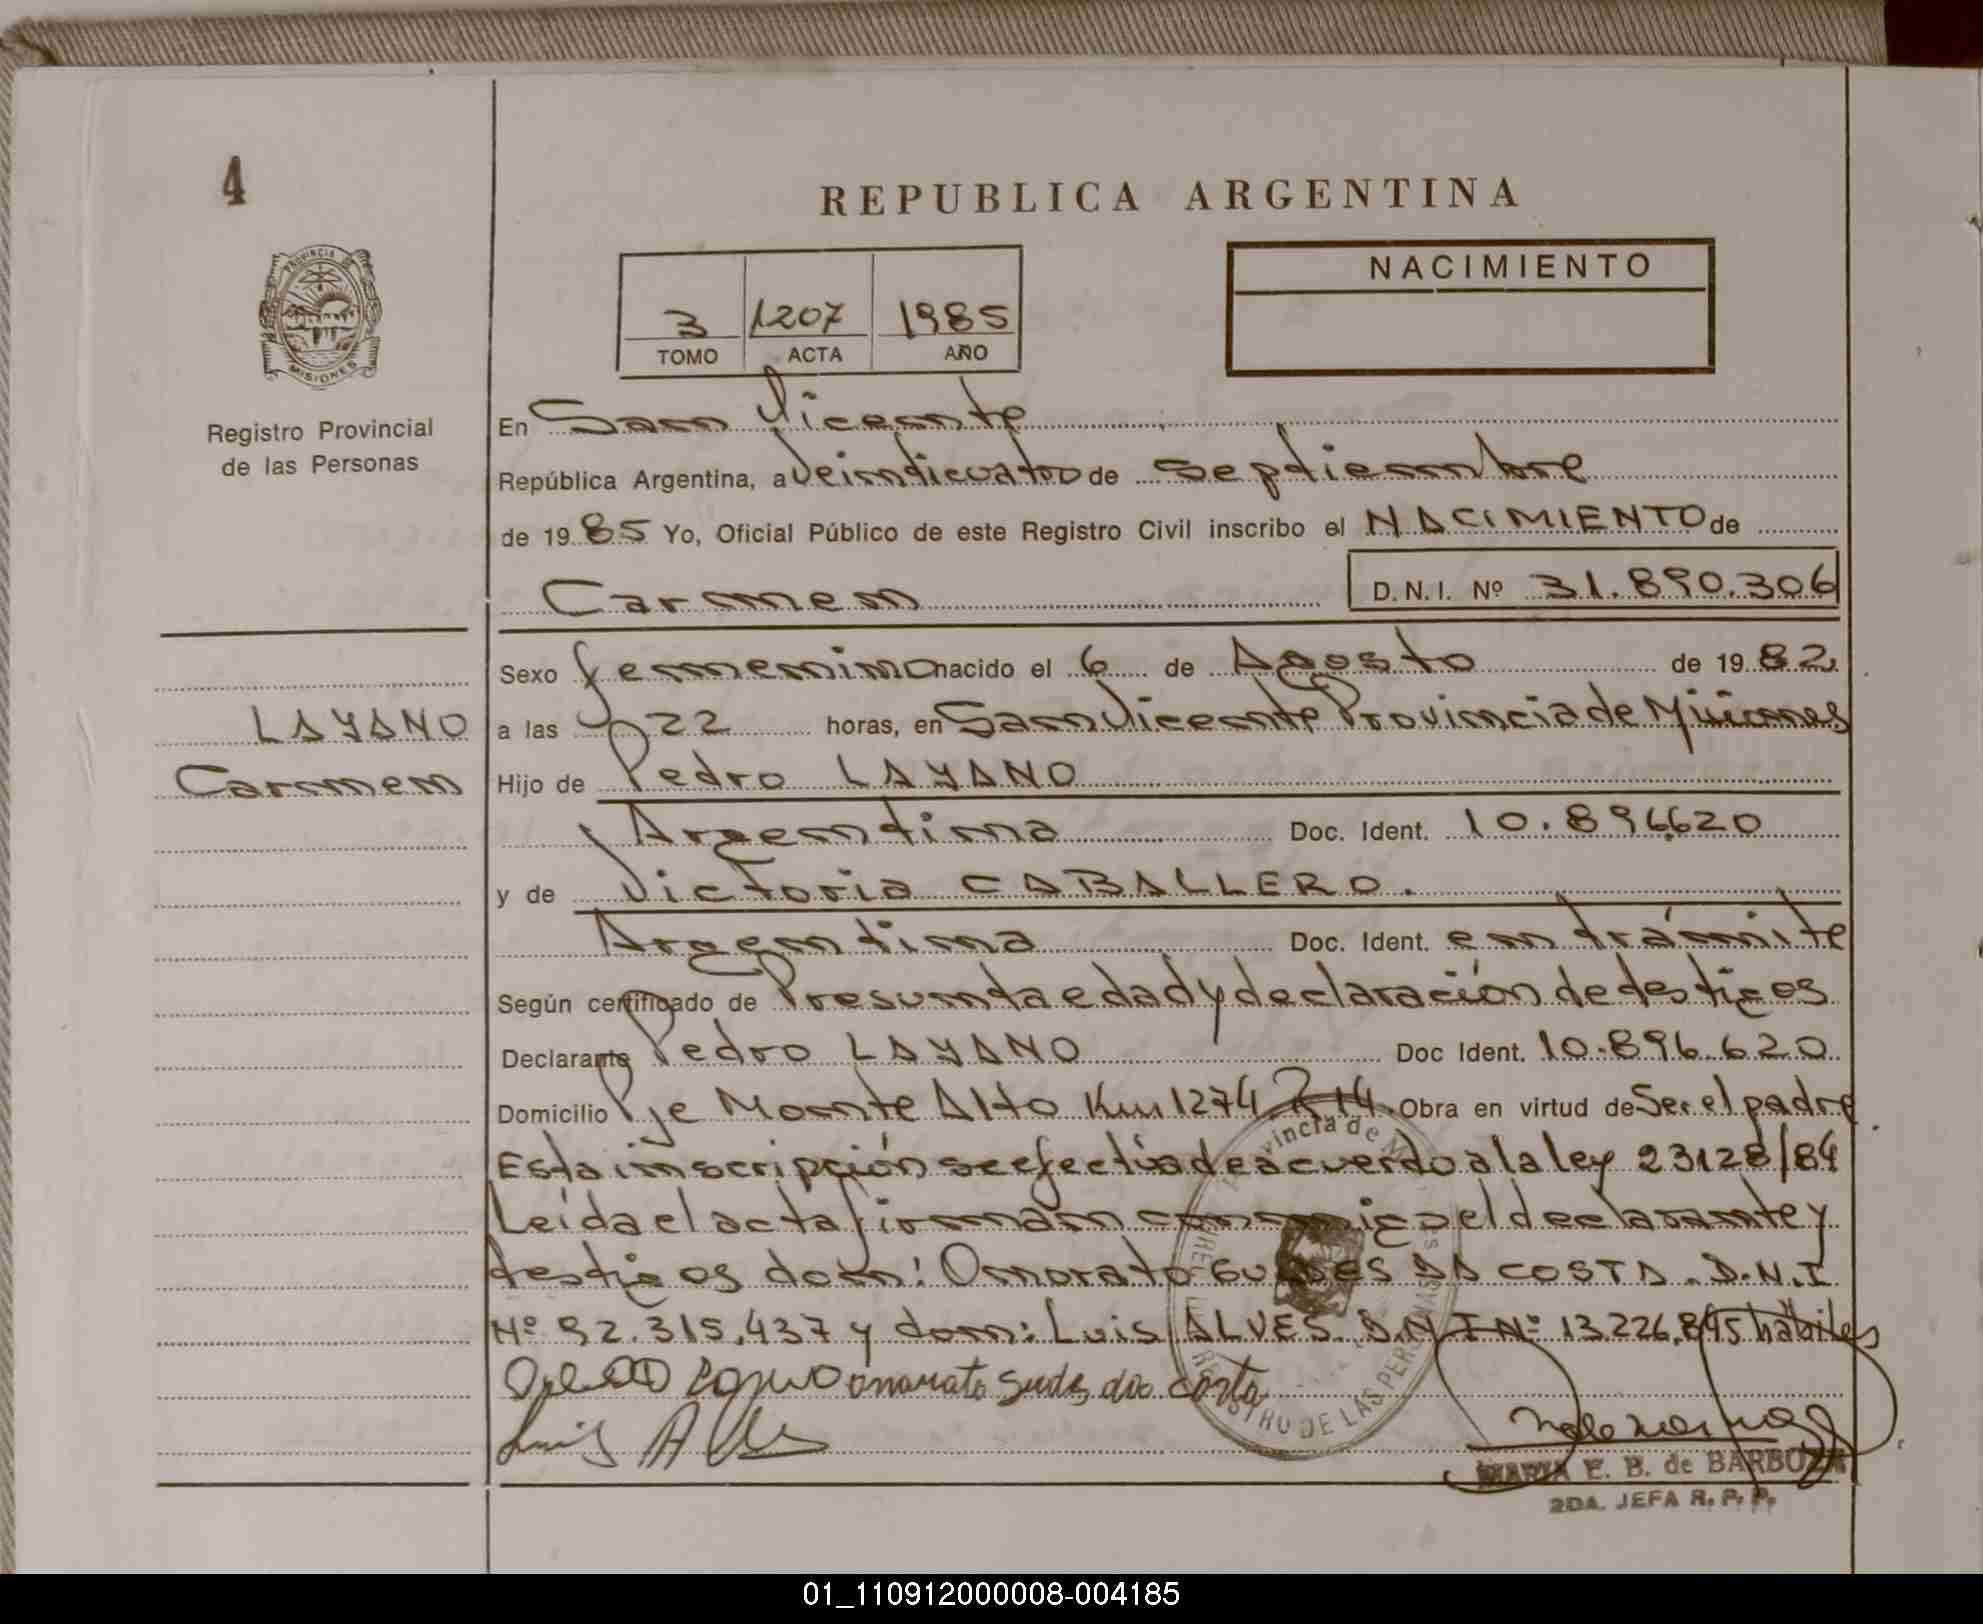 4
REPUBLICA ARGENTINA
PROVINCIA DE
MISIONES
Registro Provincial
de las Personas
3 1207 1985
TOMO ACTA AÑO
NACIMIENTO
En San Vicente
República Argentina, a veinticuatro de septiembre
de 1985 Yo, Oficial Público de este Registro Civil inscribo el NACIMIENTO de
Carmen D.N.I. Nº 31.890.306
Sexo femenino nacido el 6 de Agosto de 1982
LAYANO
Carmen
a las 22 horas, en San Vicente Provincia de Misiones
Hijo de Pedro LAYANO
Argentina Doc. Ident. 10.896.620
y de Victoria CABALLERO.
Argentina Doc. Ident. en trámite
Según certificado de Presunta edad y declaración de testigos
Declarante Pedro LAYANO Doc Ident. 10.896.620
Domicilio Pje Monte Alto Km 1274 R 14. Obra en virtud de Ser el padre
Esta inscripción se efectúa de acuerdo a la ley 23128/84
Leída el acta firman conmigo el declarante y
testigos don: Onorato DA COSTA. D.N.I
Nº 92.315.437 y don: Luis ALVES D.N.I Nº 13.226.845 hábiles
onorato da costa
Luis
MARIA E. B. de BARBOZA
2DA. JEFA R. P. P.
REGISTRO DE LAS PERSONAS
01_110912000008-004185